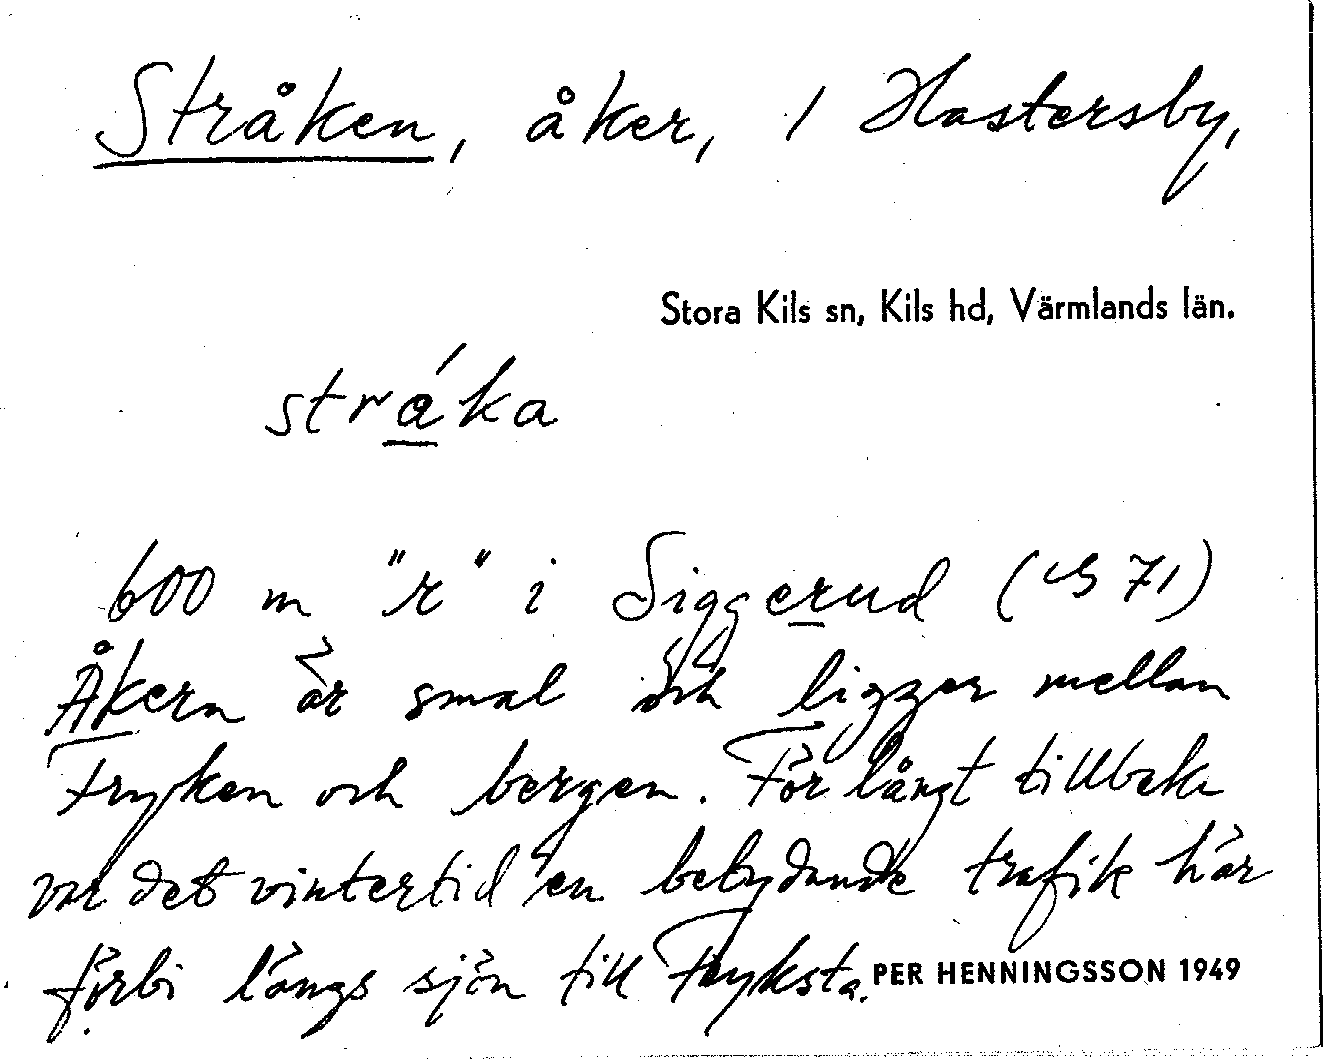 Stråken, åker, 1 Hastersby,
Stora Kils sn, Kils hd, Värmlands län.
strá̱ka
600 m "r" i Siggerud ( 71)
Åkern är smal och ligger mellan
Fryken och bergen. För långt tillbaka
var det vintertid en betydande trafik här
förbi längs sjön till Fryksta.
PER HENNINGSSON 1949